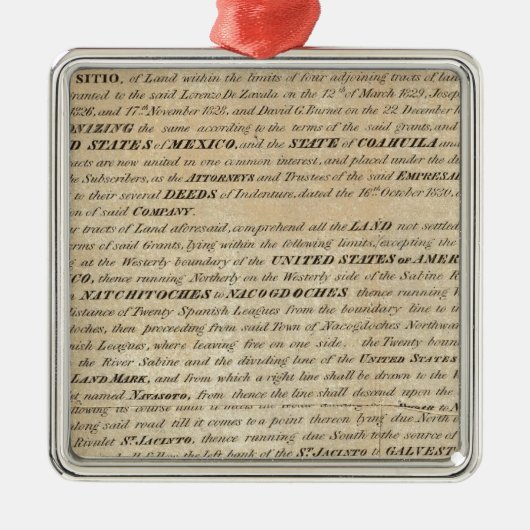 SITIO, of Land within the limits of four adjoining tracts of
ranted to the said Lorenzo De Zavala on the 12th of March 1829, Josep
1826, and 17th November 1828, and David G. Burnet on the 22 December
NAZING the same according to the terms of the said grants, and
D STATES of MEXICO, and the STATE of COAHUILA and
acts are now united in one common interest, and placed under the
he Subscribers, as the ATTORNEYS and Trustees of the said EMPRESAR
to their several DEEDS of Indenture, dated the 16th October 1830,
on of said COMPANY.
r tracts of Land aforesaid, comprehend all the LAND not settled
rms of said Grants, lying within the following limits, excepting the
g at the Westerly boundary of the UNITED STATES OF AMER
CO, thence running Northerly on the Westerly side of the Sabine R
m NATCHITOCHES to NACOGDOCHES thence running
istance of Twenty Spanish Leagues from the boundary line to
doches, then proceeding from said Town of Nacogdoches Northwar
ish Leagues, where leaving free on one side the Twenty boun
the River Sabine and the dividing line of the UNITED STATES
LAND MARK, and from which a right line shall be drawn to the
et named NAVASOTO, from thence the line shall descend upon the
llowing its course until it meets the
long said road till it comes to a point thereon lying due North
Rivulet ST. JACINTO, thence running due South to the source of
the left bank of the ST. JACINTO to GALVEST